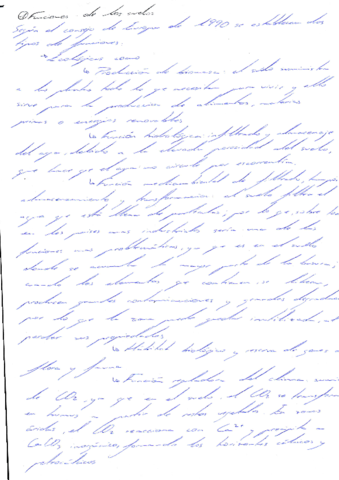 Funciones de los suelos
Según el consejo de Europa de 1990 se establecen dos
tipos de funciones:
Ecológicas como
Producción de biomasa: el suelo suministra
a las plantas todo lo que necesitan para vivir y ello
sirve para la producción de alimentos, materias
primas o energías renovables
Función hidrológica: infiltrado y almacenaje
del agua, debido a la elevada porosidad del suelo,
que hace que el agua no circule por escorrentía
Función medioambiental de filtrado,
almacenamiento y transformación: el suelo filtra el
agua que está llena de
en los países mas industriales sería una de las
funciones mas problemáticas, ya que es en el suelo
donde se acumula la mayor parte de la
cuando los elementos que contienen se liberan,
producen grandes contaminaciones y grandes
por lo que la zona puede quedar inutilizada, al
perder sus propiedades
Hábitat biológico y reserva de genes de
flora y fauna
Función reguladora del clima: sumidero
de CO2, ya que en el suelo el CO2 se transforma
en humus a partir de restos vegetales. En zonas
áridas, el CO2 reacciona con Ca2+ y precipita a
CaCO3 formando los horizontes cálcicos y
petrocálcicos